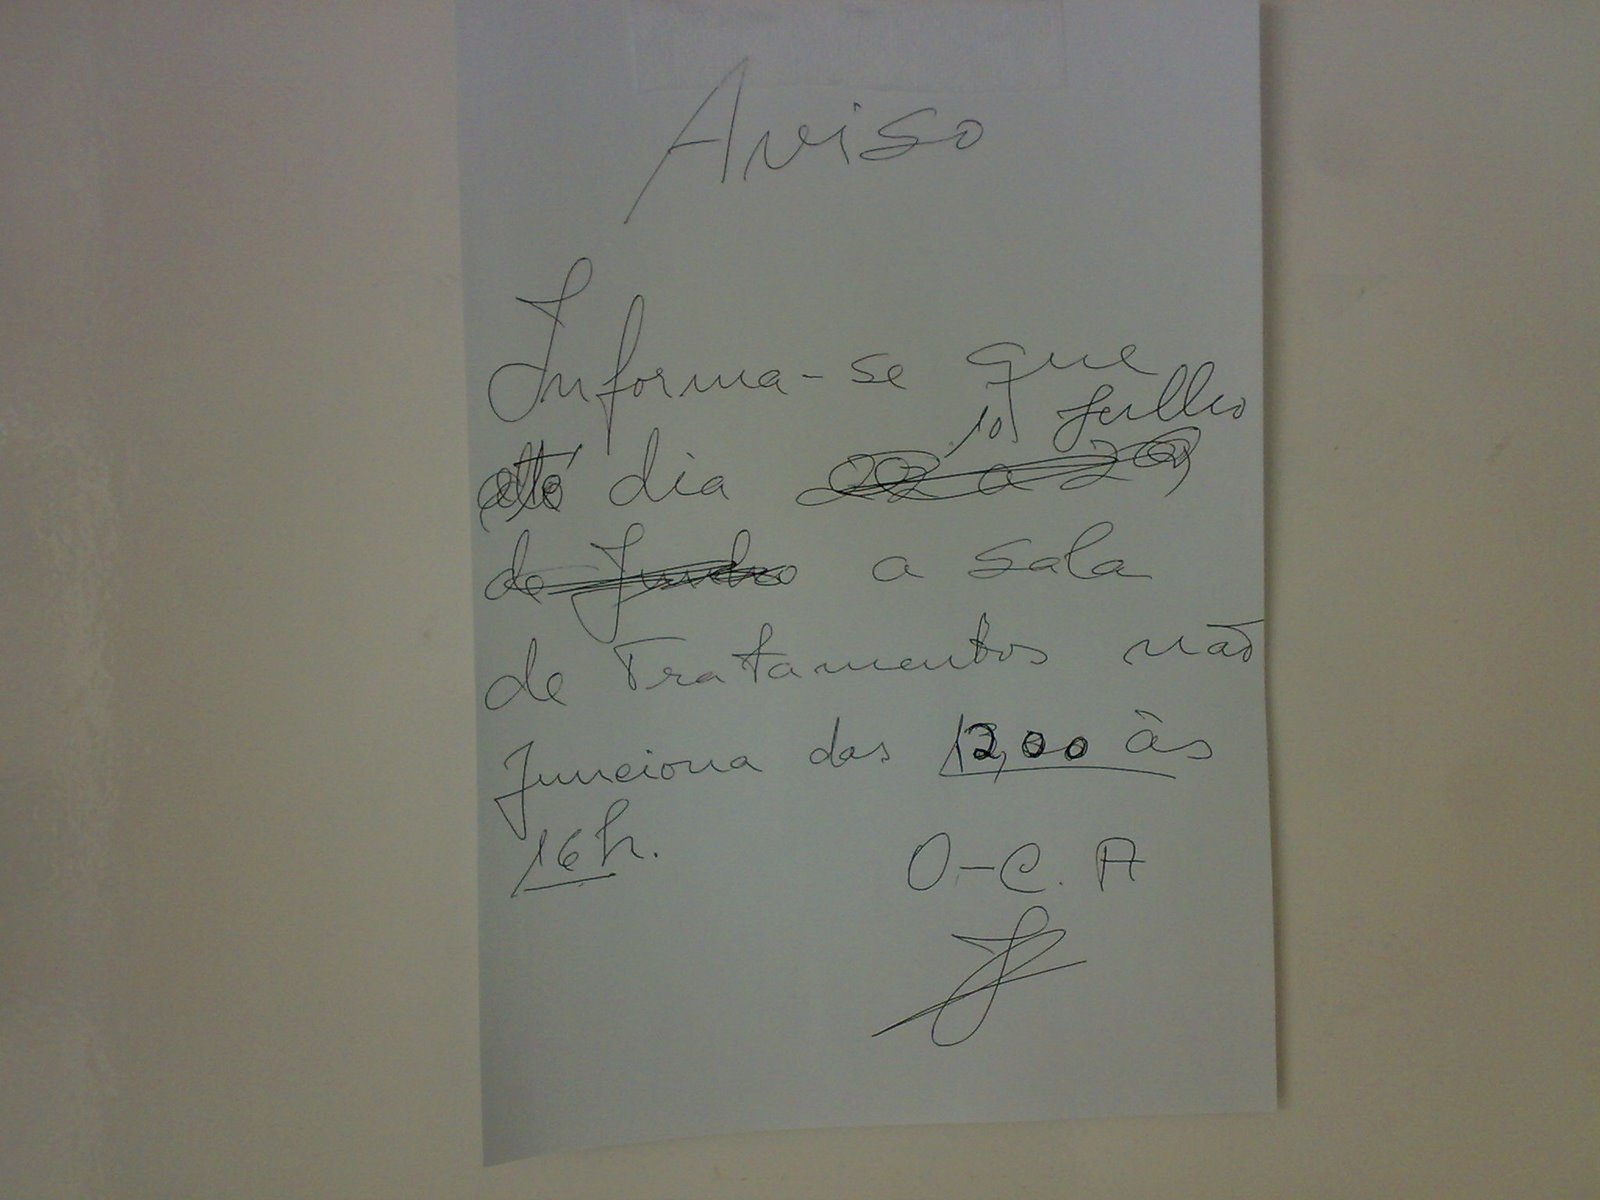 Aviso
Informa-se que
10 Julho
até dia 22 a 29
de Junho a sala
de Tratamentos não
funciona das 12,00 às
16h.
O-C. A